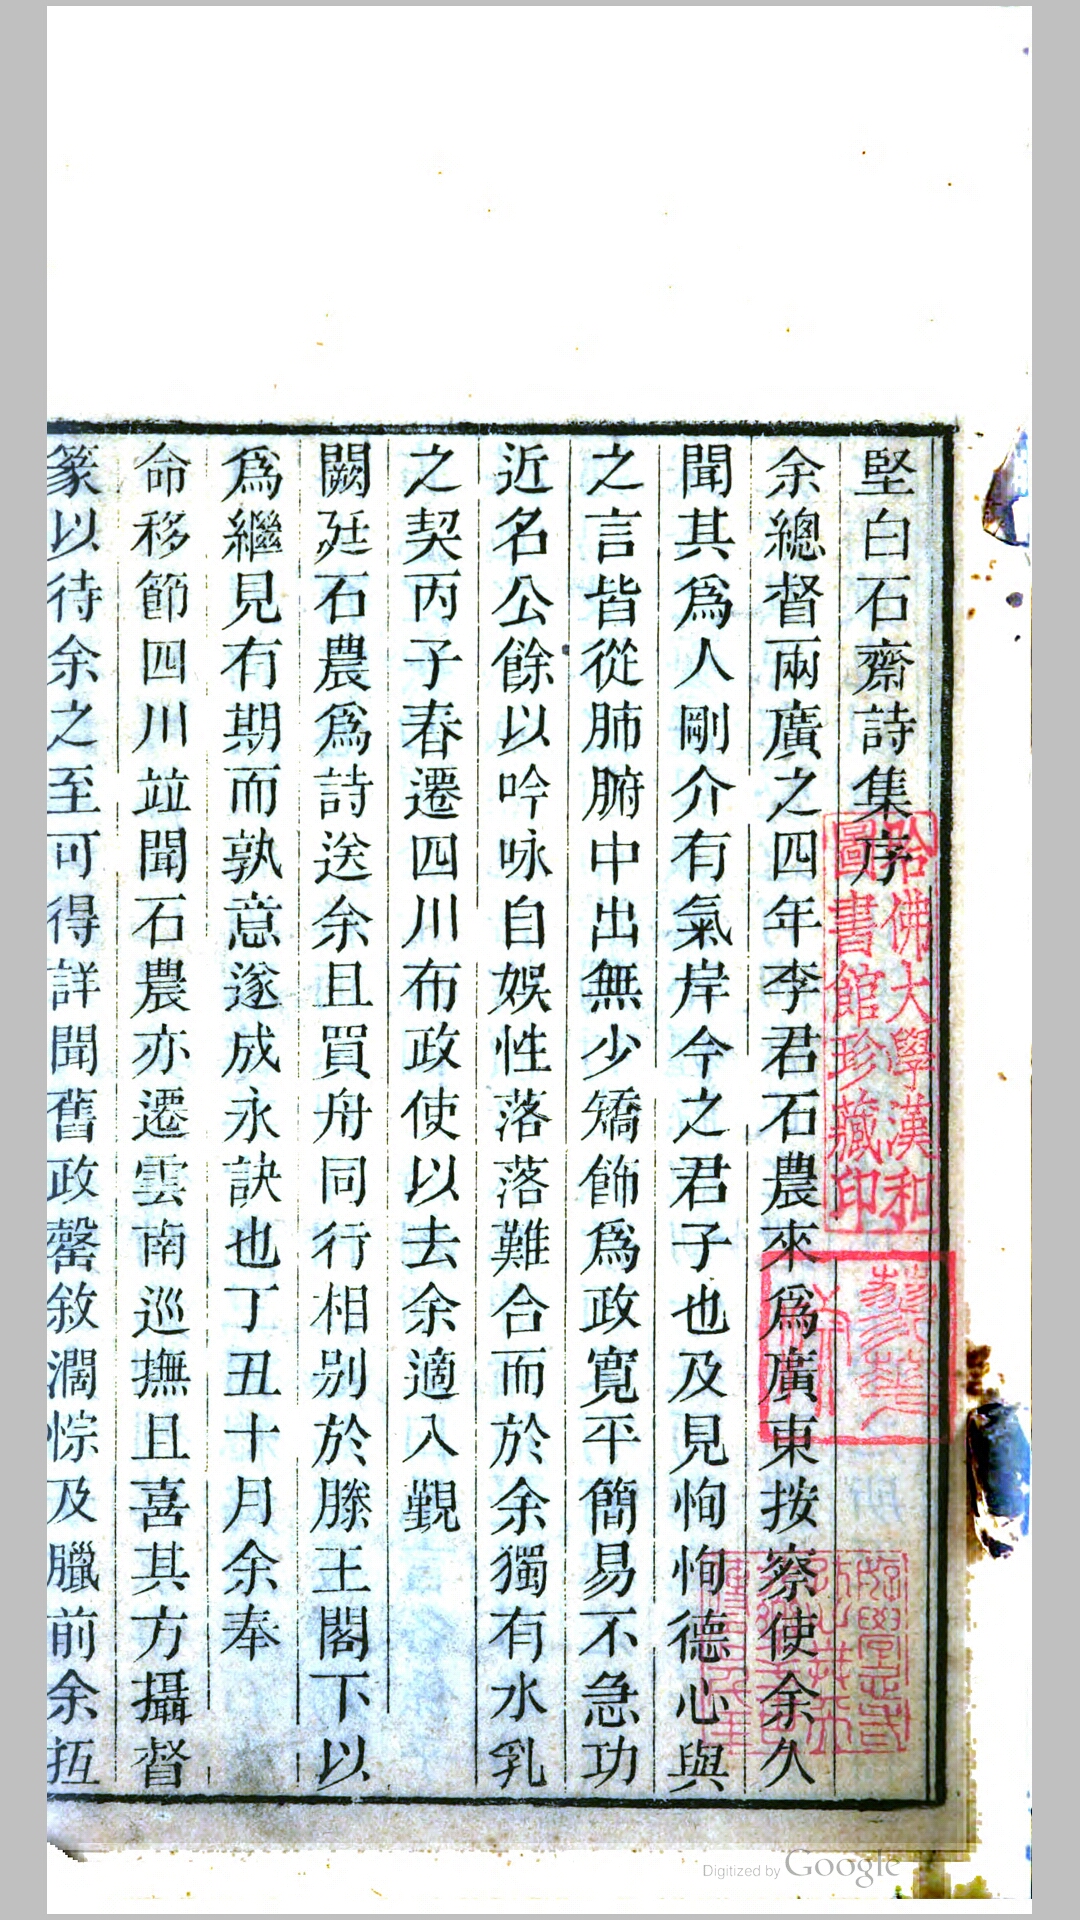 堅白石齋詩集序
余總督兩廣之四年李君石農來爲廣東按察使余久
聞其爲人剛介有氣岸今之君子也及見恂恂德心與
之言皆從肺腑中出無少矯飾爲政寬平簡易不急功
近名公餘以吟咏自娛性落落難合而於余獨有水乳
之契丙子春遷四川布政使以去余適入覲
闕廷石農爲詩送余且買舟同行相别於滕王閣下以
爲繼見有期而孰意遂成永訣也丁丑十月余奉
命移節四川竝聞石農亦遷雲南巡撫且喜其方攝督
篆以待余之至可得詳聞舊政罄敘濶悰及臘前余抵
哈佛大學漢和
圖書館珍藏印
Digitized by Google